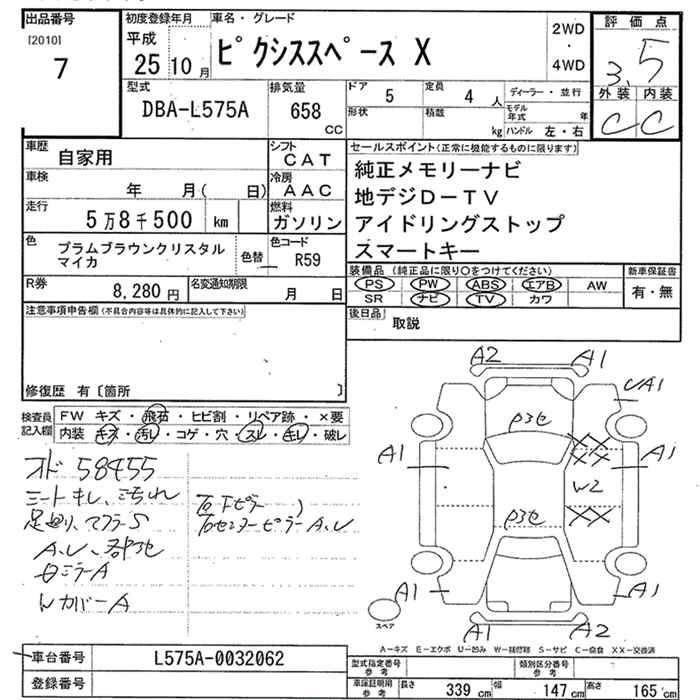 出品番号
[2010]
7
初度登録年月
平成
25 10 月
車名・グレード
ピクシススペース X
2WD
・
4WD
評価点
3.5
外装 内装
C C
型式
DBA-L575A
排気量
658
CC
ドア
5
定員
4 人
ディーラー・並行
形状
積載
kg
モデル年式 年
ハンドル 左・右
車歴
自家用
シフト
CAT
車検
年 月( 日)
冷房
AAC
走行
5万8千500 km
燃料
ガソリン
色
プラムブラウンクリスタル
マイカ
色替
色コード
R59
R券
8,280 円
名変通知期限
月 日
セールスポイント(正常に機能するものに限ります)
純正メモリーナビ
地デジD-TV
アイドリングストップ
スマートキー
装備品 (純正品に限り○をつけてください)
PS PW ABS エアB AW
SR ナビ TV カワ
新車保証書
有・無
後日品
取説
注意事項申告欄(不具合内容等は具体的に記入して下さい)
修復歴 有〔箇所 〕
検査員
記入欄
FW キズ・飛石・ヒビ割・リペア跡・×要
内装 キズ・汚レ・コゲ・穴・スレ・キレ・破レ
オド 58455
シートキレ、汚れ
足廻り、マフラーS
A、U、部色
ミラーA
カバーA
右Fピラー
右センターピラーA、U
A2 A1
UA1
P3セ
A1 XX A1
XX
W2
P3セ
XX
A1 A1
A1 A2
スペア
A-キズ E-エクボ U-凹み W-補修跡 S-サビ C-腐食 XX-交換済
車台番号
L575A-0032062
登録番号
型式指定番号
参考
類別区分番号
参考
車保証明用
参考
長さ 339 cm
幅 147 cm
高さ 165 cm